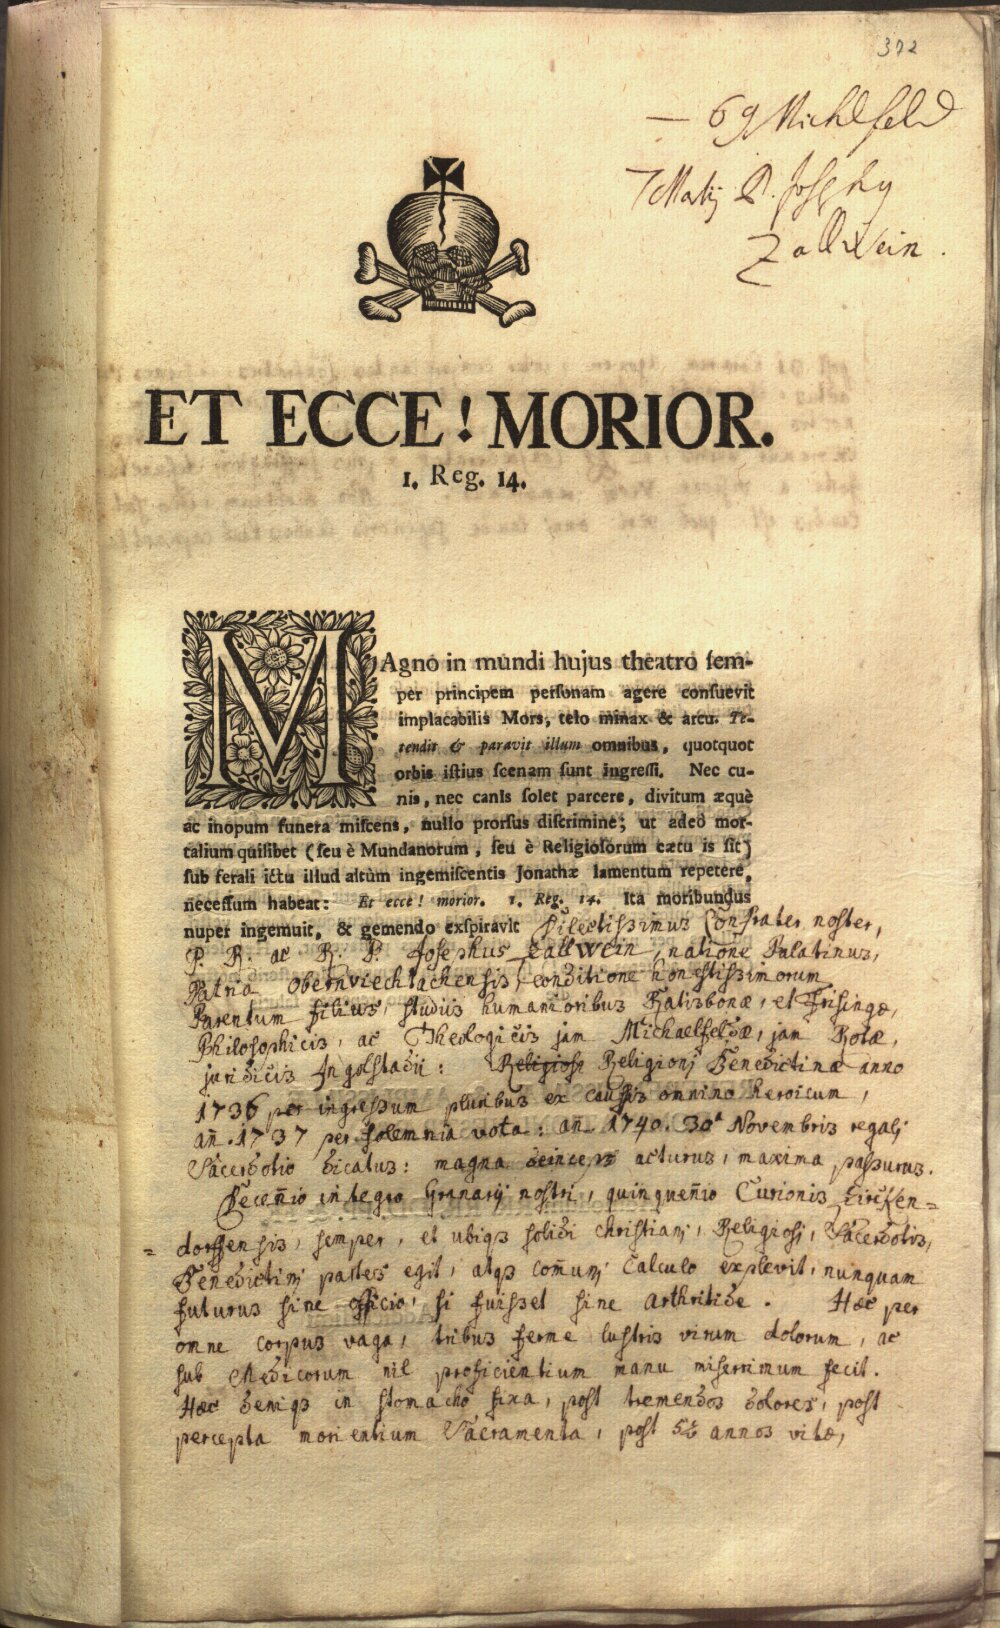 372
— 69 Michlfeld
7 Maij P. Josephy
Zallwein.
ET ECCE! MORIOR.
1. Reg. 14.
MAgno in mundi hujus theatro ſem-
per principem perſonam agere conſuevit
implacabilis Mors, telo minax & arcu. Te-
tendit & paravit illum omnibus, quotquot
orbis iſtius ſcenam ſunt ingreſſi. Nec cu-
nis, nec canis ſolet parcere, divitum æquè
ac inopum funera miſcens, nullo prorſus diſcrimine; ut adeò mor-
talium quilibet (ſeu è Mundanorum, ſeu è Religioſorum cætu is ſit)
ſub ferali ictu illud altùm ingemiſcentis Jonathæ lamentum repetere,
neceſſum habeat: Et ecce! morior. 1. Reg. 14. Ita moribundus
nuper ingemuit, & gemendo exſpiravit Dilectissimus Confrater noster,
P. R. ac R. P. Josephus Zallwein, natione Palatinus,
Patria Obernviechtachensis, conditione honestissimorum
Parentum filius, studiis humanioribus Ratisbonæ, et Frisingæ,
Philosophicis, ac Theologicis jam Michaelfeldæ, jam Rotæ,
juridicis Ingolstadii: Religiosi Religioni Benedictinæ anno
1736 per ingressum pluribus ex caussis omnino heroicum,
añ. 1737 per solemnia vota: añ. 1740. 30ª Novembris regali
Sacerdotio dicatus: magna deinceps acturus, maxima passurus.
Deceñio integro Granarij nostri, quinqueñio Curionis Kirchen=
=dorffensis, semper, et ubiqs solidi christiani, Religiosi, Sacerdotis,
Beñedictini partes egit, atqs com̃uni Calculo explevit, nunquam
futurus sine officio, si fuisset sine Arthritide. Hæc per
omne corpus vaga, tribus ferme lustris virum dolorum, ac
sub Medicorum nil proficientium manu miserrimum fecit.
Hæc deniqs in stomacho fixa, post tremendos dolores, post
percepta morientium Sacramenta, post annos vitæ,